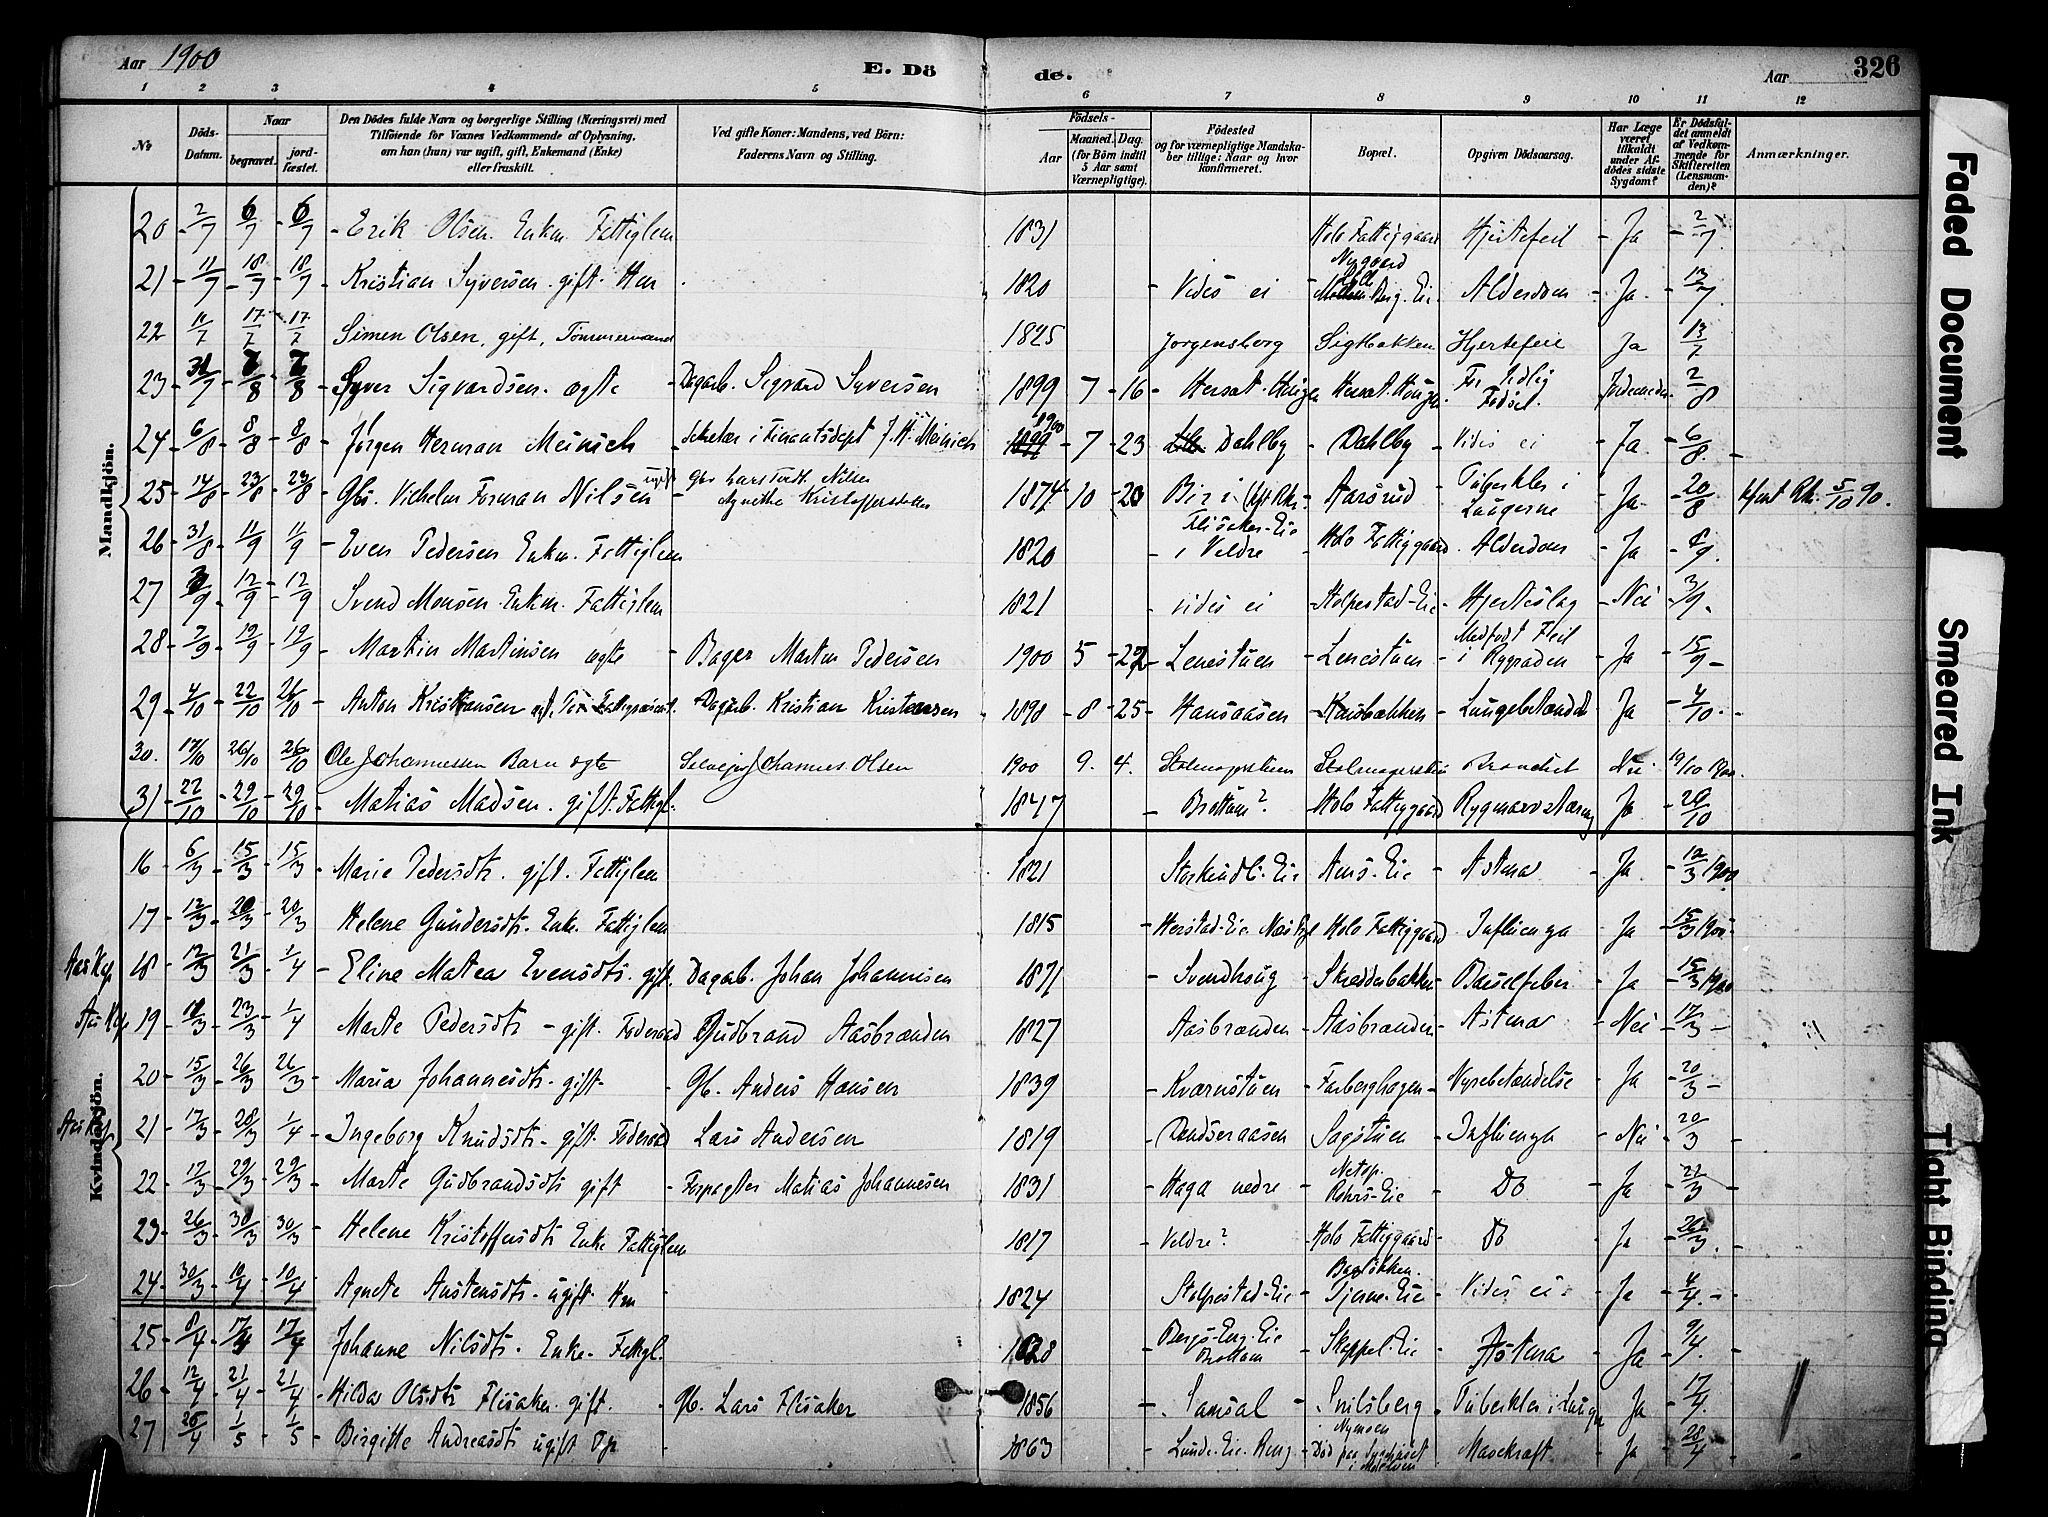 Aar 1900
E. Dö
de.
Aar
326
1 2 3 4 5 6 7 8 9 10 11 12
No
Döds-Datum.
Naar
begravet.
jord-fæstet.
Den Dödes fulde Navn og borgerlige Stilling (Næringsvei) med
Tilföiende for Voxnes Vedkommende af Oplysning,
om han (hun) var ugift, gift, Enkemand (Enke)
eller fraskilt.
Ved gifte Koner: Mandens, ved Börn:
Faderens Navn og Stilling.
Födsels-
Aar
Maaned. Dag.
(for Börn indtil
5 Aar samt
Værnepligtige).
Födested
og for værnepligtige Mandska-
ber tillige: Naar og hvor
konfirmeret.
Bopæl.
Opgiven Dödsaarsag.
Har Læge
været
tilkaldt
under Af-
dödes sidste
Sygdom?
Er Dödsfal-
det anmeldt
af Vedkom-
mende for
Skifteretten
(Lensman-
den)?
Anmærkninger.
Mandkjön.
20 2/7 6/7 6/7 Erik Olsen. Enkm. Fattiglem 1831 Holo Fattiggaard Hjertefeil Ja 2/7
21 11/7 18/7 18/7 Kristian Syversen. gift. Hm 1820 Vides ei Nygaard Berg-Eie Alderdom Ja 13/7
22 11/7 17/7 17/7 Simen Olsen, gift, Tømmermand 1825 Jorgensborg Sigtbakken Hjertefeil Ja 13/7
23 31/7 7/8 7/8 Syver Sigvardsen. ægte Dagarb. Sigvard Syversen 1899 7 16 Hersat-Haugen Hersat-Haugen For tidlig Fødsel. Jordemoder 2/8
24 6/8 8/8 8/8 Jørgen Herman Meinich Sekretær i Finantsdept J. H. Meinich 1900 7 23 Dahlby Dahlby Vides ei Ja 6/8
25 14/8 23/8 23/8 Gbs. Vilhelm Forman Nilsen ugift Gbs Lars Nilsen Agnethe Kristoffersdatter 1874 10 20 Biri Aarsrud Tuberkler i Lungerne Ja 20/8 5/10 90.
26 31/8 11/9 11/9 Even Pedersen Enkm. Fattiglem 1820 Flisaker-Eie i Veldre Holo Fattiggaard Alderdom Ja 8/9
27 2/9 12/9 12/9 Svend Monsen. Enkm. Fattiglem 1821 Vides ei Stolpestad-Eie Hjerteslag Nei 3/9
28 7/9 19/9 19/9 Martin Martinsen ægte Bager Martin Pedersen 1900 5 27 Lenestuen Lenestuen Medfødt Feil i Rygraden Ja 15/9
29 4/10 22/10 26/10 Anton Kristiansen Dagarb. Kristian Kristensen 1898 8 25 Hansaasen Lungebetændelse Ja 4/10
30. 17/10 26/10 26/10 Ole Johannessen Barn ægte Selveier Johannes Olsen 1900 9. 4. Brændt Nei 19/10 1900
31 22/10 29/10 29/10 Matias Madsen. gift. Fattigl. 1847 Brøttum? Holo Fattiggaard Rygmarvstæring Ja 20/10
Kvindekjön.
16 6/3 15/3 15/3 Marie Pedersdtr. gift. Fattiglem 1821 Aurs-Eie Astma Ja 12/3 1900
17 12/3 20/3 20/3 Helene Gundersdtr. Enke. Fattiglem 1815 Herstad-Eie Holo Fattiggaard Influenza Ja 15/3 1900
Aas Kap 18 12/3 21/3 1/4 Eline Matea Evensdtr. gift. Dagarb. Johan Johannesen 1871 Svendhoug Skredderbakken Barselfeber Ja 15/3 1900
Aas Kap 19 12/3 23/3 1/4 Marte Pedersdtr. gift. Føderaad Gudbrand Aasbrænden 1827 Aasbrænden Aasbrænden Astma Nei 17/3
20 15/3 26/3 26/3 Maria Johannesdtr. gift Gb. Anders Hansen 1839 Kværnstuen Farberghagen Nyrebetændelse Ja 20/3
Aas Kap 21 17/3 28/3 1/4 Ingeborg Knudsdtr. gift. Føderaad Lars Andersen 1819 Sagstuen Influenza Nei 20/3
22 17/3 29/3 29/3 Marte Gudbrandsdtr. gift Forpagter Matias Johannesen 1831 Haga nedre Rohrs-Eie Do Ja 22/3
23 26/3 30/3 30/3 Helene Kristoffersdtr. Enke Fattiglem 1817 Veldre? Holo Fattiggaard Do Ja 26/3
24 30/3 10/4 10/4 Agnete Austensdtr. ugift Hm 1824 Stolpestad-Eie Bagbakken. Tjerne-Eie Vides ei. Ja 4/4
25 8/4 17/4 17/4 Johanne Nilsdtr. Enke. Fattigl. 1828 Bergs-Eng-Eie Brøttum Skappel-Eie Astma Ja 9/4
26 12/4 21/4 21/4 Hilda Olsdtr. Flisaker. gift. Gb. Lars Flisaker 1856 Samsal Snilsberg Tuberkler i Lunger Ja 17/4
27 25/4 1/5 1/5 Birgitte Andreasdtr. ugift 1863 Lunde-Eie Ring Død paa Sygehuset i Moelven Mavekræft Ja 28/4
Faded Document
Smeared Ink
Tight Binding